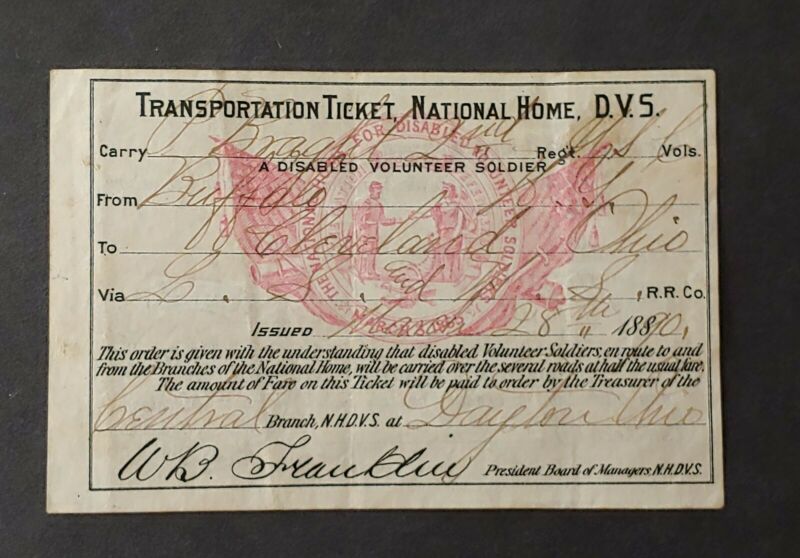 TRANSPORTATION TICKET, NATIONAL HOME, D.V.S.
Carry Regt. Vols.
A DISABLED VOLUNTEER SOLDIER
From Buffalo N.Y.
To Cleveland, Ohio
Via L. S. and M. S. R.R. Co.
ISSUED March 28th 1890,
This order is given with the understanding that disabled Volunteer Soldiers, en route to and
from the Branches of the National Home, will be carried over the several roads at half the usual fare.
The amount of Fare on this Ticket will be paid to order by the Treasurer of the
Central Branch, N.H.D.V.S. at Dayton Ohio
W B. Franklin President Board of Managers N.H.D.V.S.
THE NATIONAL FOR DISABLED VOLUNTEER SOLDIERS